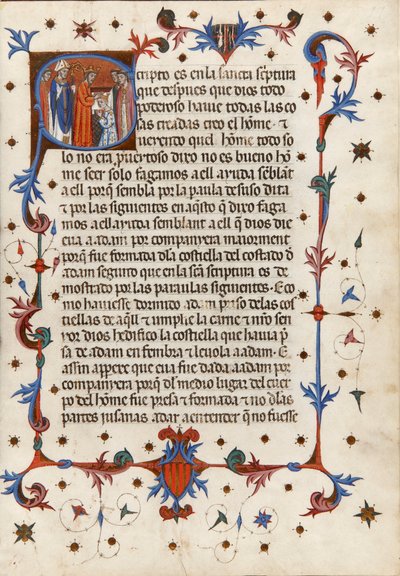 Scripto es en la sancta scriptura
que despues que dios todo
poderoso havie todas las co
sas creadas creo el home. E
veyendo quel home todo so
lo no era provetoso dixo no es bueno hō
me seer solo fagamos a ell ayuda sēblāt
a ell por q̄ semblā por la paula desuso dita
et por las siguientes en aq̄sto q̄ dixo faga
mos a ell ayuda semblant a ell q̄ dios die
eua a adam por companyera maiorment
porq̄ fue formada dla costiella del costado d
adam seguīt que en la scā scriptura es de
mostrado por las paraulas siguientes. E co
mo haviesse dormido adam priso delas cos
tiellas de aq̄ll et umplie la carne et nr̄o sen
yor dios hedifico la costiella que havia p̄
sa de adam en fembra et levola a adam. E
assin appere que eua fue dada a adam por
companyera porq̄ dl medio lugar del cuer
po del home fue presa et formada et no dlas
partes jusanas. a dar a entender q̄ no fuesse